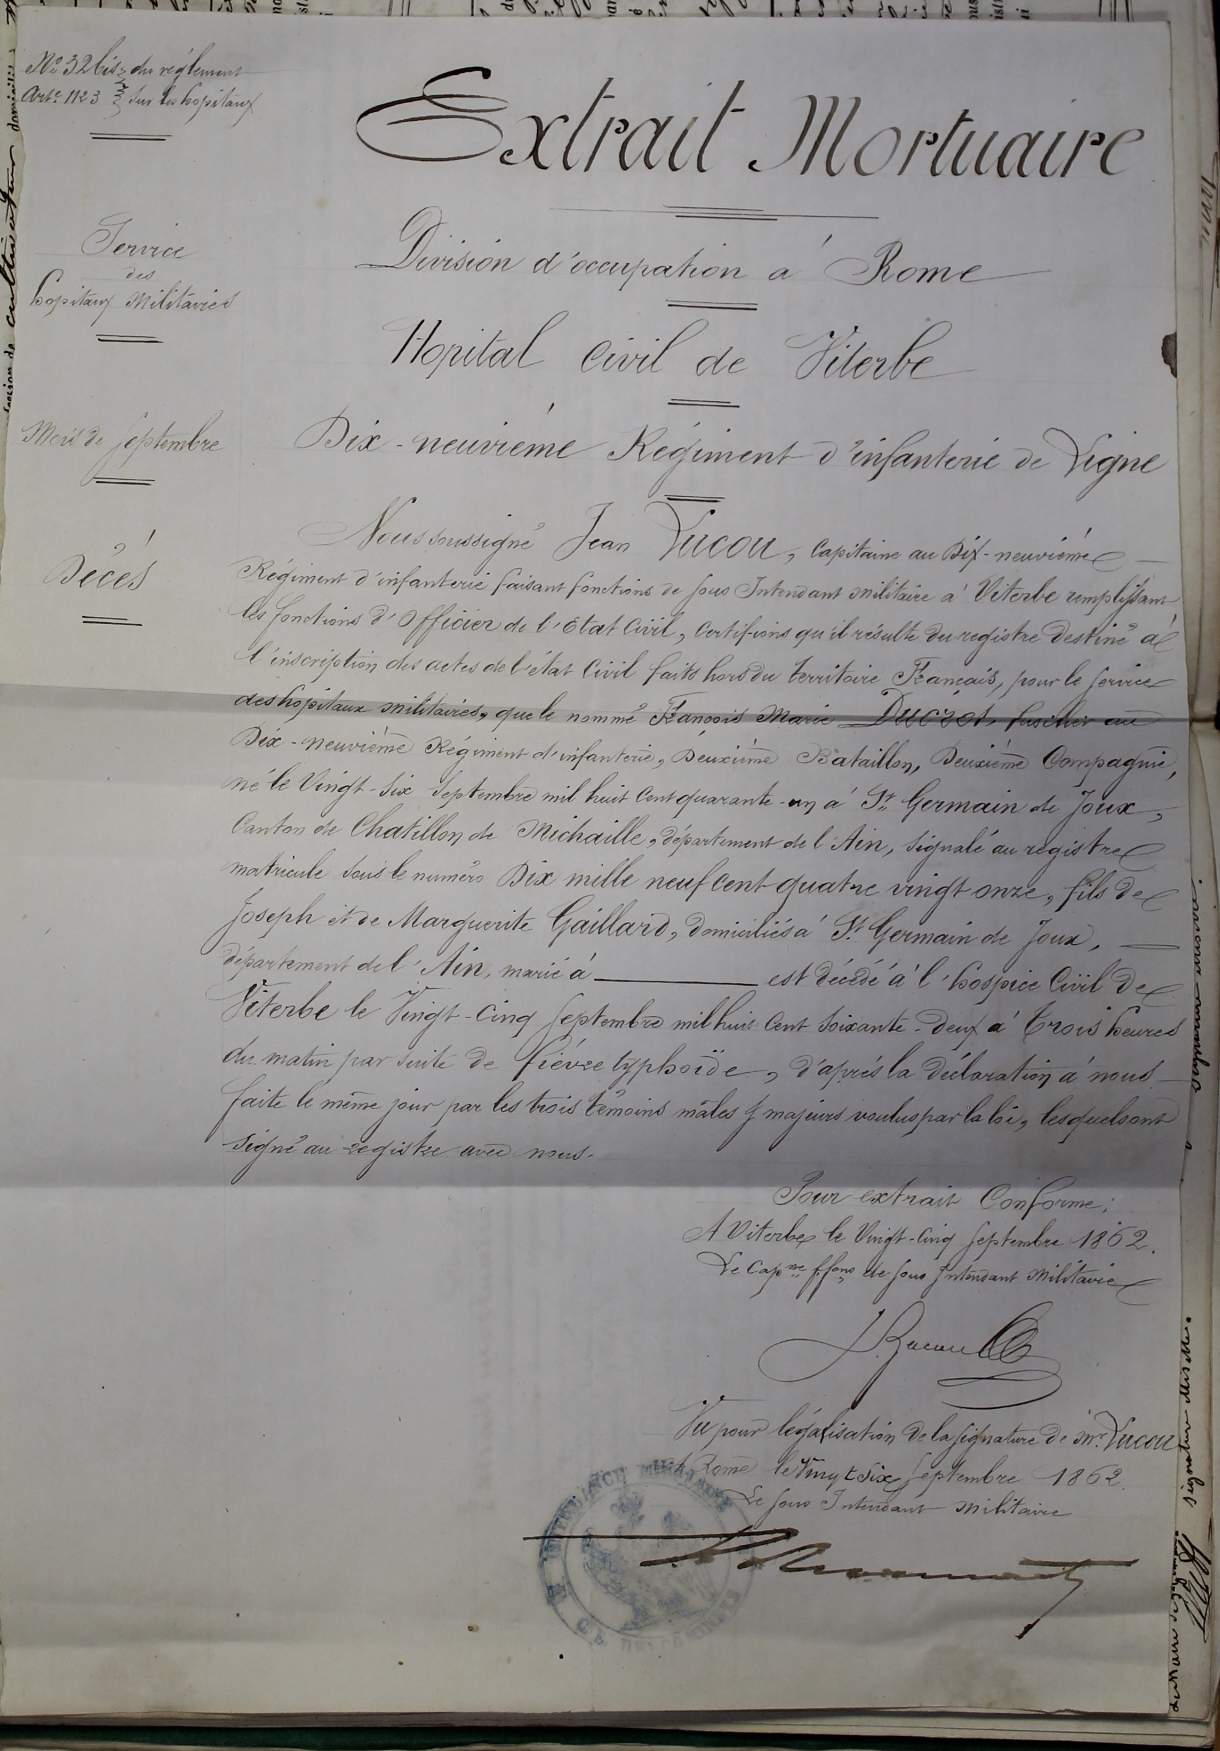 N° 32 bis du réglement
Art. 1123 sur les hopitaux
Extrait Mortuaire
Service
des
hopitaux Militaires
Division d'occupation à Rome
Hopital Civil de Viterbe
Mois de Septembre
Dix-neuvième Régiment d'infanterie de Ligne
Décés
Nous soussigné Jean Lucou, Capitaine au Dix-neuvième
Régiment d'infanterie faisant fonctions de Sous Intendant Militaire à Viterbe remplissant
les fonctions d'Officier de l'Etat Civil, Certifions qu'il résulte du registre destiné à
l'inscription des actes de l'état Civil faits hors du territoire Français, pour le service
des hopitaux militaires, que le nommé François Marie Ducrot, fusilier au
Dix-neuvième Régiment d'infanterie, Deuxième Bataillon, Deuxième Compagnie,
né le Vingt-six Septembre mil huit Cent quarante-un à St Germain de Joux,
Canton de Chatillon de Michaille, département de l'Ain, signalé au registre
matricule sous le numéro Dix mille neuf cent quatre vingt onze, fils de
Joseph et de Marguerite Gaillard, domiciliés à St Germain de Joux,
département de l'Ain, marié à est décédé à l'hospice Civil de
Viterbe le Vingt-Cinq Septembre mil huit Cent soixante-deux à Trois heures
du matin par suite de fiévre typhoïde, d'après la déclaration à nous
faite le même jour par les trois témoins mâles & majeurs voulus par la loi, lesquels ont
signé au registre avec nous.
Pour extrait Conforme:
A Viterbe le Vingt-Cinq Septembre 1862.
Le Capne ffons de Sous Intendant Militaire
Vu pour légalisation de la signature de Mr. Lucou
A Rome le Vingt Six Septembre 1862.
Le Sous Intendant Militaire
INTENDANCE MILITAIRE